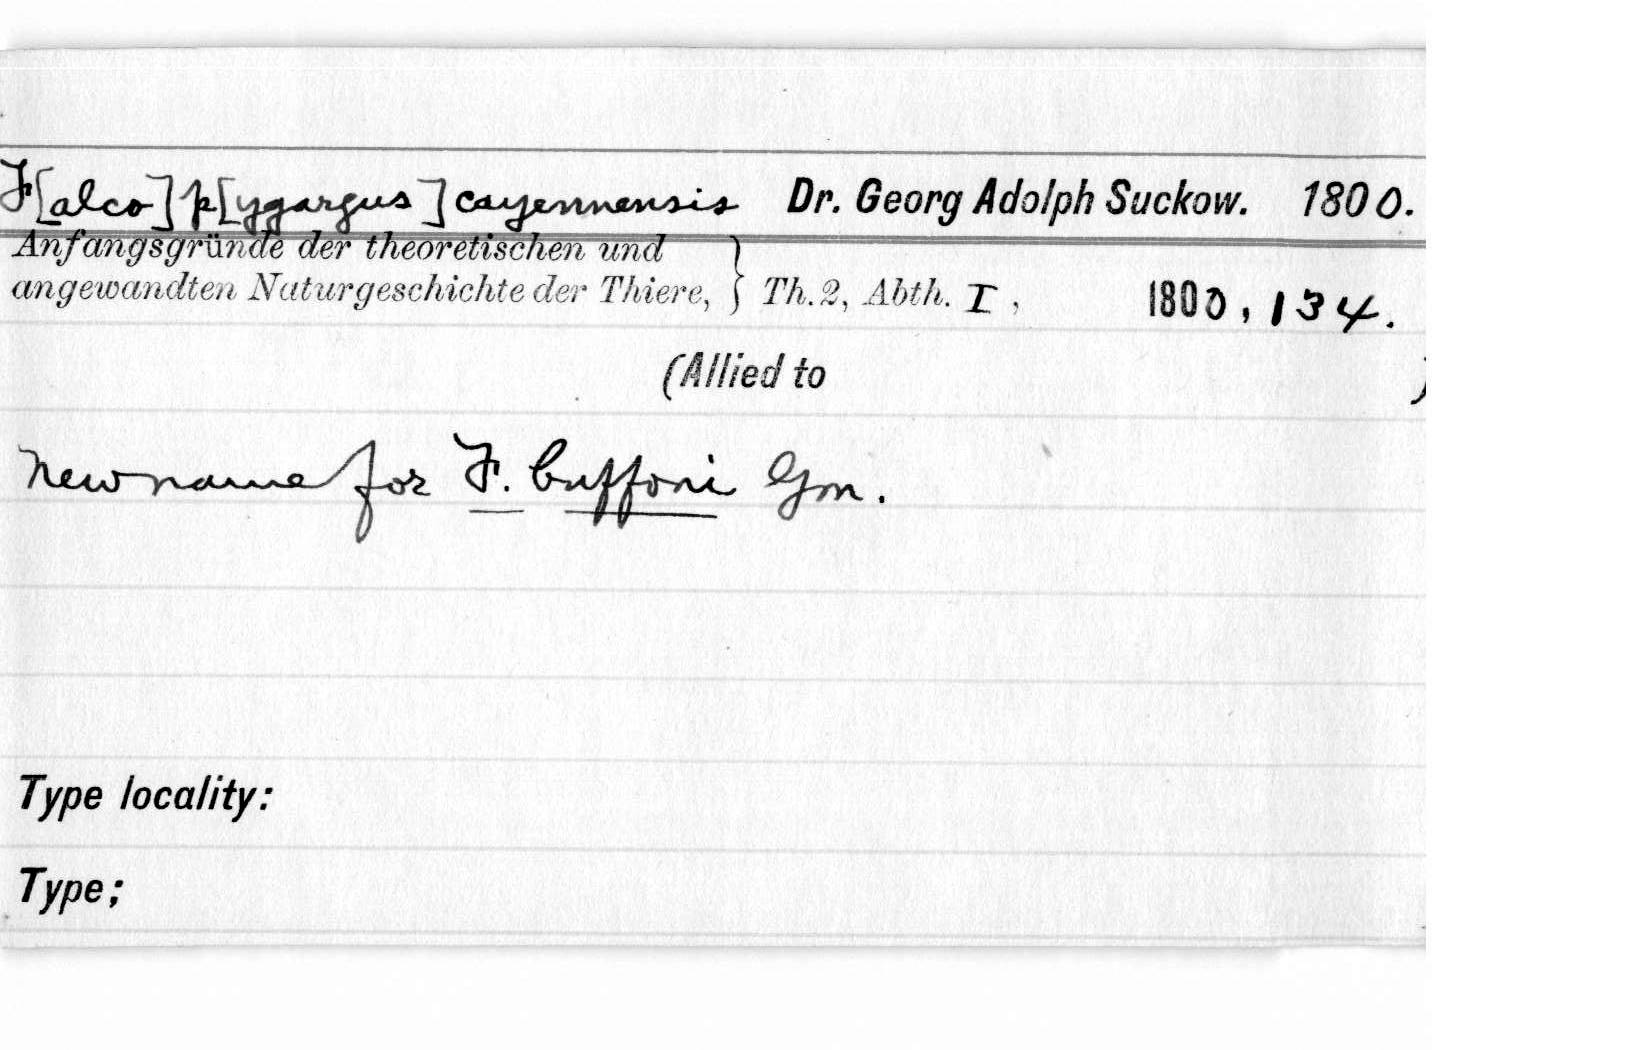 F[alco] p[ygargus] cayennensis Dr. Georg Adolph Suckow. 1800.
Anfangsgründe der theoretischen und
angewandten Naturgeschichte der Thiere, } Th. 2, Abth. I, 1800, 134.
(Allied to )
New name for F. buffoni Gm.
Type locality:
Type;